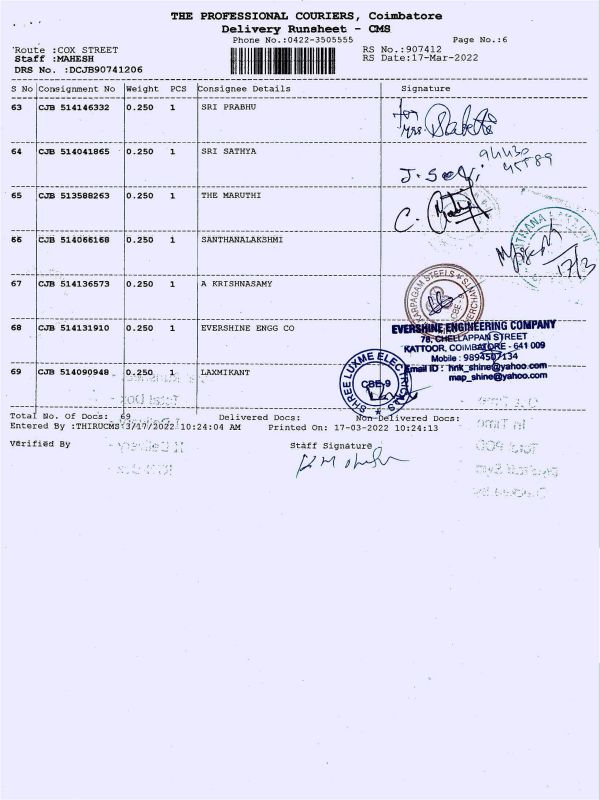 THE PROFESSIONAL COURIERS, Coimbatore
Delivery Runsheet - CMS
Phone No.:0422-3505555 Page No.:6
Route :COX STREET RS No.:907412
Staff :MAHESH RS Date:17-Mar-2022
DRS No. :DCJB90741206
S No Consignment No Weight PCS Consignee Details Signature
63 CJB 514146332 0.250 1 SRI PRABHU
for
Mrs
64 CJB 514041865 0.250 1 SRI SATHYA
J. Selvi
65 CJB 513588263 0.250 1 THE MARUTHI
C.
66 CJB 514066168 0.250 1 SANTHANALAKSHMI
17/3
67 CJB 514136573 0.250 1 A KRISHNASAMY
KARPAGAM STEELS
68 CJB 514131910 0.250 1 EVERSHINE ENGG CO
EVERSHINE ENGINEERING COMPANY
78, CHELLAPPAN STREET
KATTOOR, COIMBATORE - 641 009
Mobile : 9894507134
Email ID : hnk_shine@yahoo.com
map_shine@yahoo.com
69 CJB 514090948 0.250 1 LAXMIKANT
SHREE LUXME ELECTRICALS
CBE-9
Total No. Of Docs: 69 Delivered Docs: Non-Delivered Docs:
Entered By :THIRUCMS 3/17/2022 10:24:04 AM Printed On: 17-03-2022 10:24:13
Verified By Staff Signature